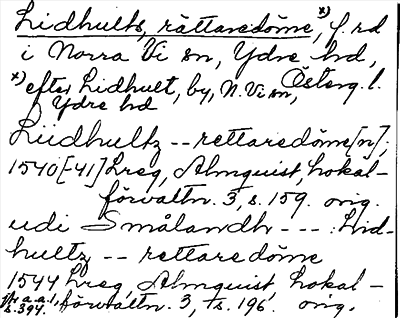 Lidhults, rättaredöme, *) f. rd
i Norra Vi sn, Ydre hd,
Österg. l.
*) efter Lidhult, by, N. Vi sn,
Ydre hd
Liidhultz -- rettaredöme[n],
1540[-41] Lreg, Almquist, Lokal-
förvaltn. 3, s. 159. orig.
udi Smålandh --- Lid-
hultz -- rettaredöme
1544 Lreg, Almquist, Lokal-
förvaltn. 3, s. 196. orig.
a.a.1,
s. 394.